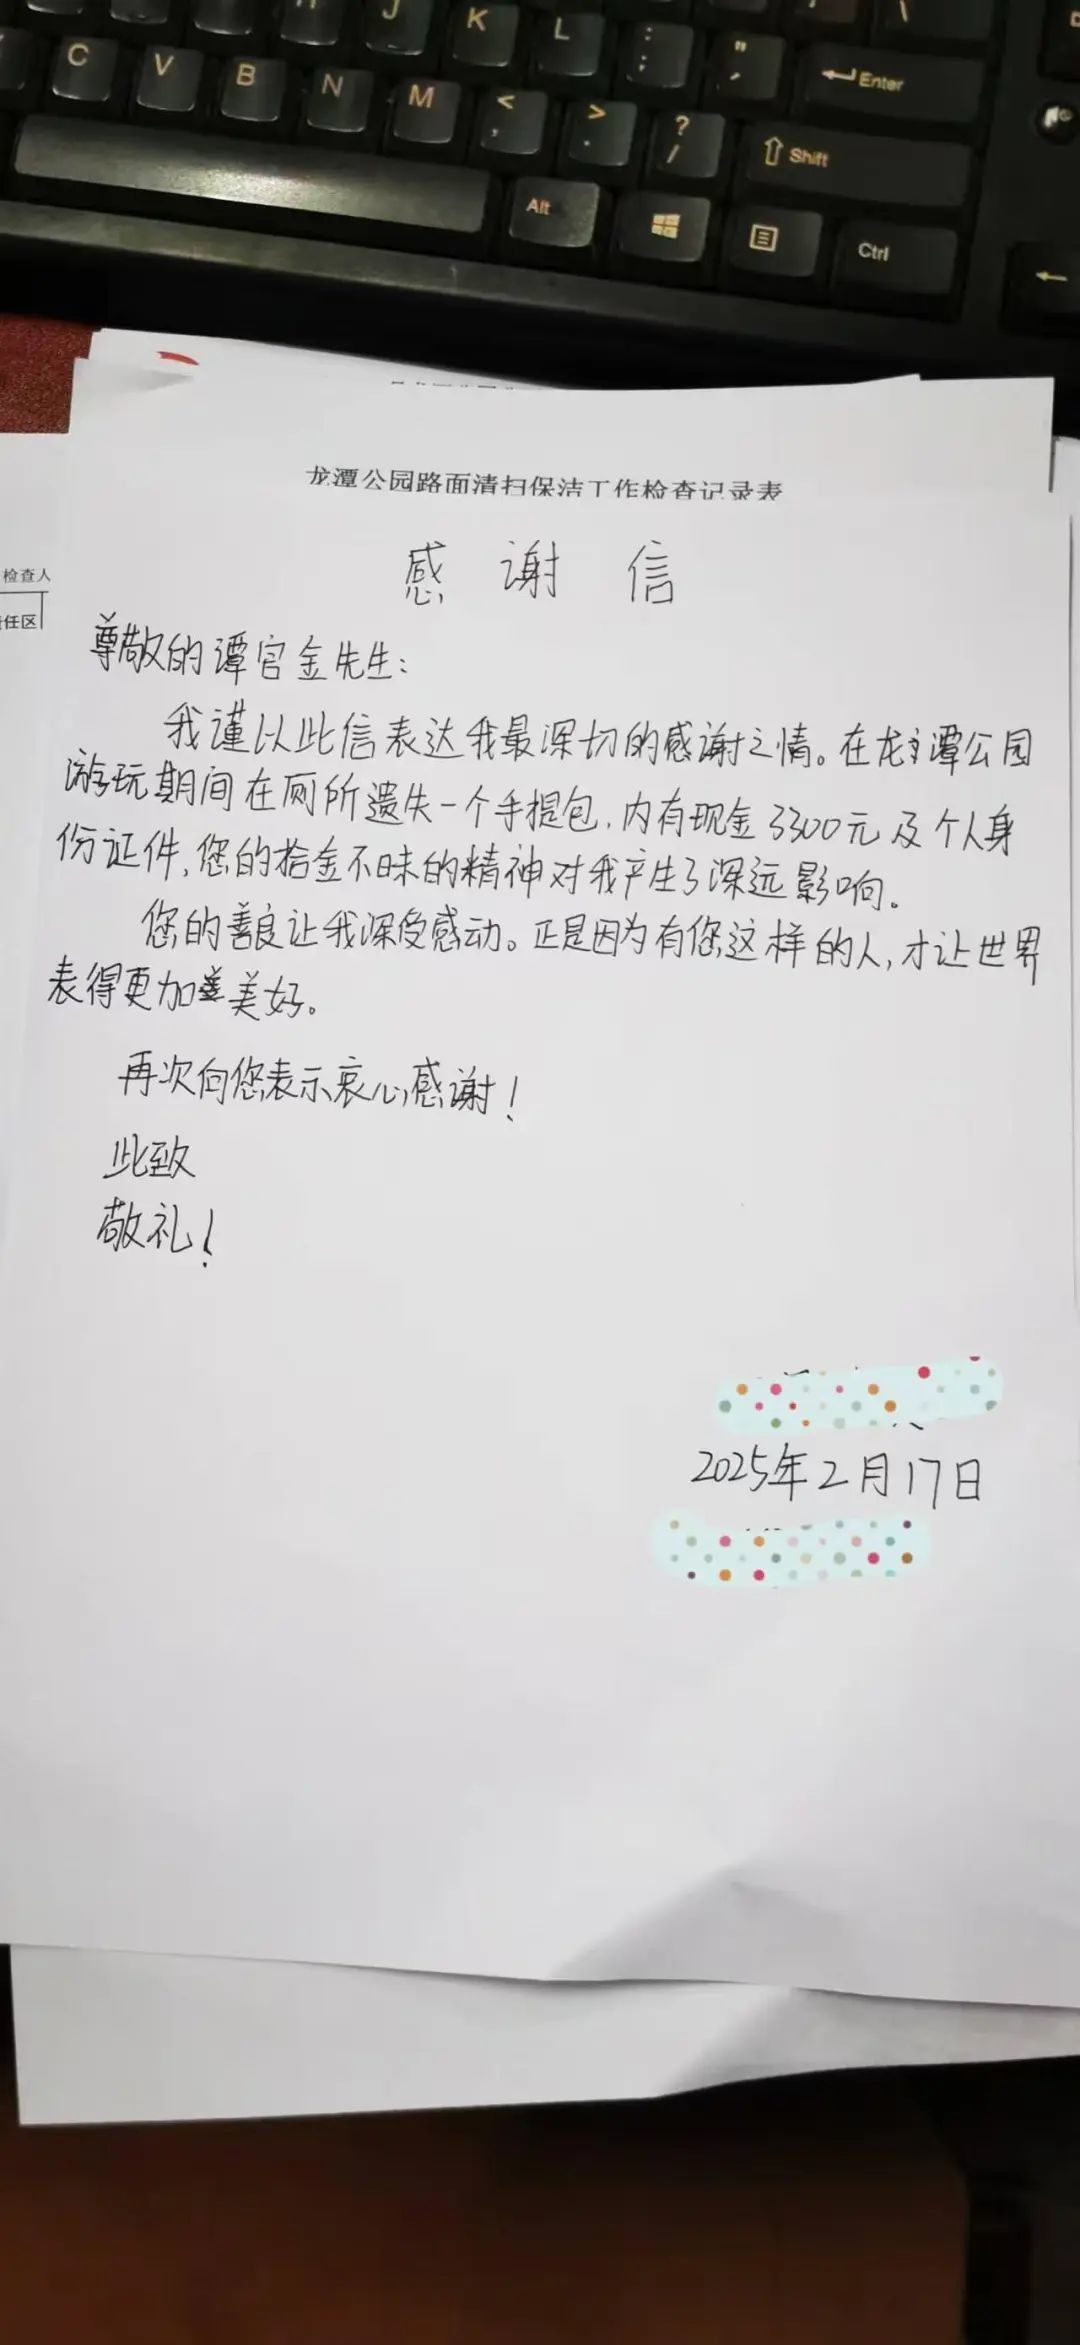 J
K
L
:
;
"
'
\
Enter
C
V
B
N
M
<
,
>
.
?
/
Shift
Alt
Ctrl
龙潭公园路面清扫保洁工作检查记录表
检查人
任区
感谢信
尊敬的谭官金先生:
我谨以此信表达我最深切的感谢之情。在龙潭公园
游玩期间在厕所遗失一个手提包,内有现金3300元及个人身
份证件,您的拾金不昧的精神对我产生了深远影响。
您的善良让我深受感动。正是因为有您这样的人,才让世界
表得更加美好。
再次向您表示衷心感谢!
此致
敬礼!
2025年2月17日